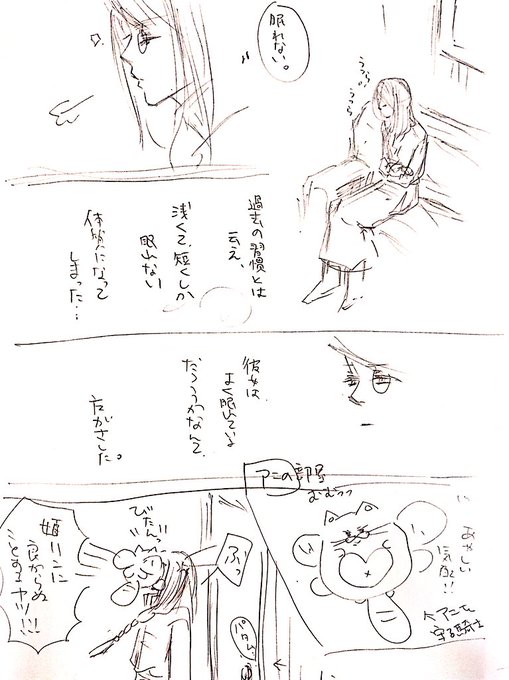 うつら
うつら
眠れない。
過去の習慣とは
云え、
浅くて、短くしか
眠れない
体質になって
しまった…
彼女は
よく眠れている
だろうかなんて、
方がさした。
アニの部屋
むむっっ
あやしい
気配!!
アニを
守る騎士
ぷ
びたんっ
パタム
姫リンに
良からぬ
ことするヤツ!!!